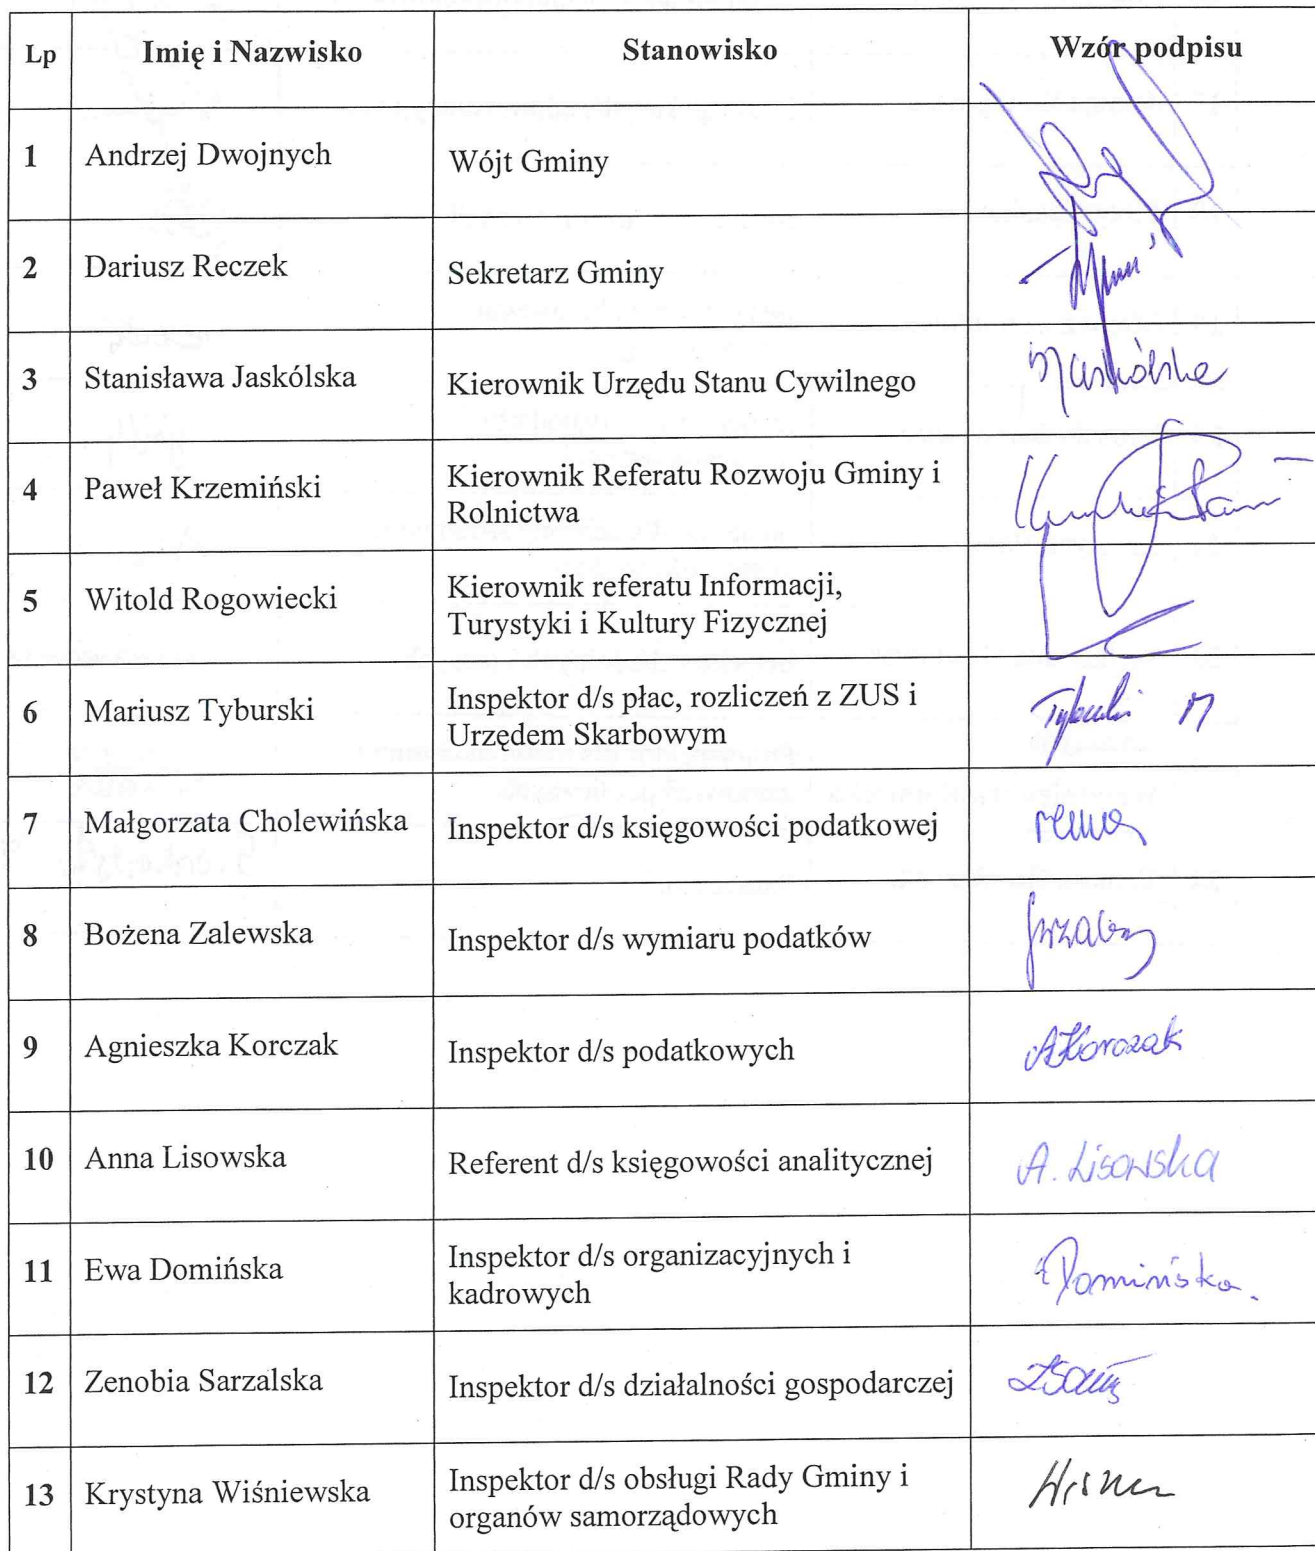 Lp Imię i Nazwisko Stanowisko Wzór podpisu
1 Andrzej Dwojnych Wójt Gminy
2 Dariusz Reczek Sekretarz Gminy
3 Stanisława Jaskólska Kierownik Urzędu Stanu Cywilnego Jaskólska
4 Paweł Krzemiński Kierownik Referatu Rozwoju Gminy i
Rolnictwa
5 Witold Rogowiecki Kierownik referatu Informacji,
Turystyki i Kultury Fizycznej
6 Mariusz Tyburski Inspektor d/s płac, rozliczeń z ZUS i
Urzędem Skarbowym
7 Małgorzata Cholewińska Inspektor d/s księgowości podatkowej
8 Bożena Zalewska Inspektor d/s wymiaru podatków
9 Agnieszka Korczak Inspektor d/s podatkowych AKorczak
10 Anna Lisowska Referent d/s księgowości analitycznej A. Lisowska
11 Ewa Domińska Inspektor d/s organizacyjnych i
kadrowych EDomińska.
12 Zenobia Sarzalska Inspektor d/s działalności gospodarczej
13 Krystyna Wiśniewska Inspektor d/s obsługi Rady Gminy i
organów samorządowych